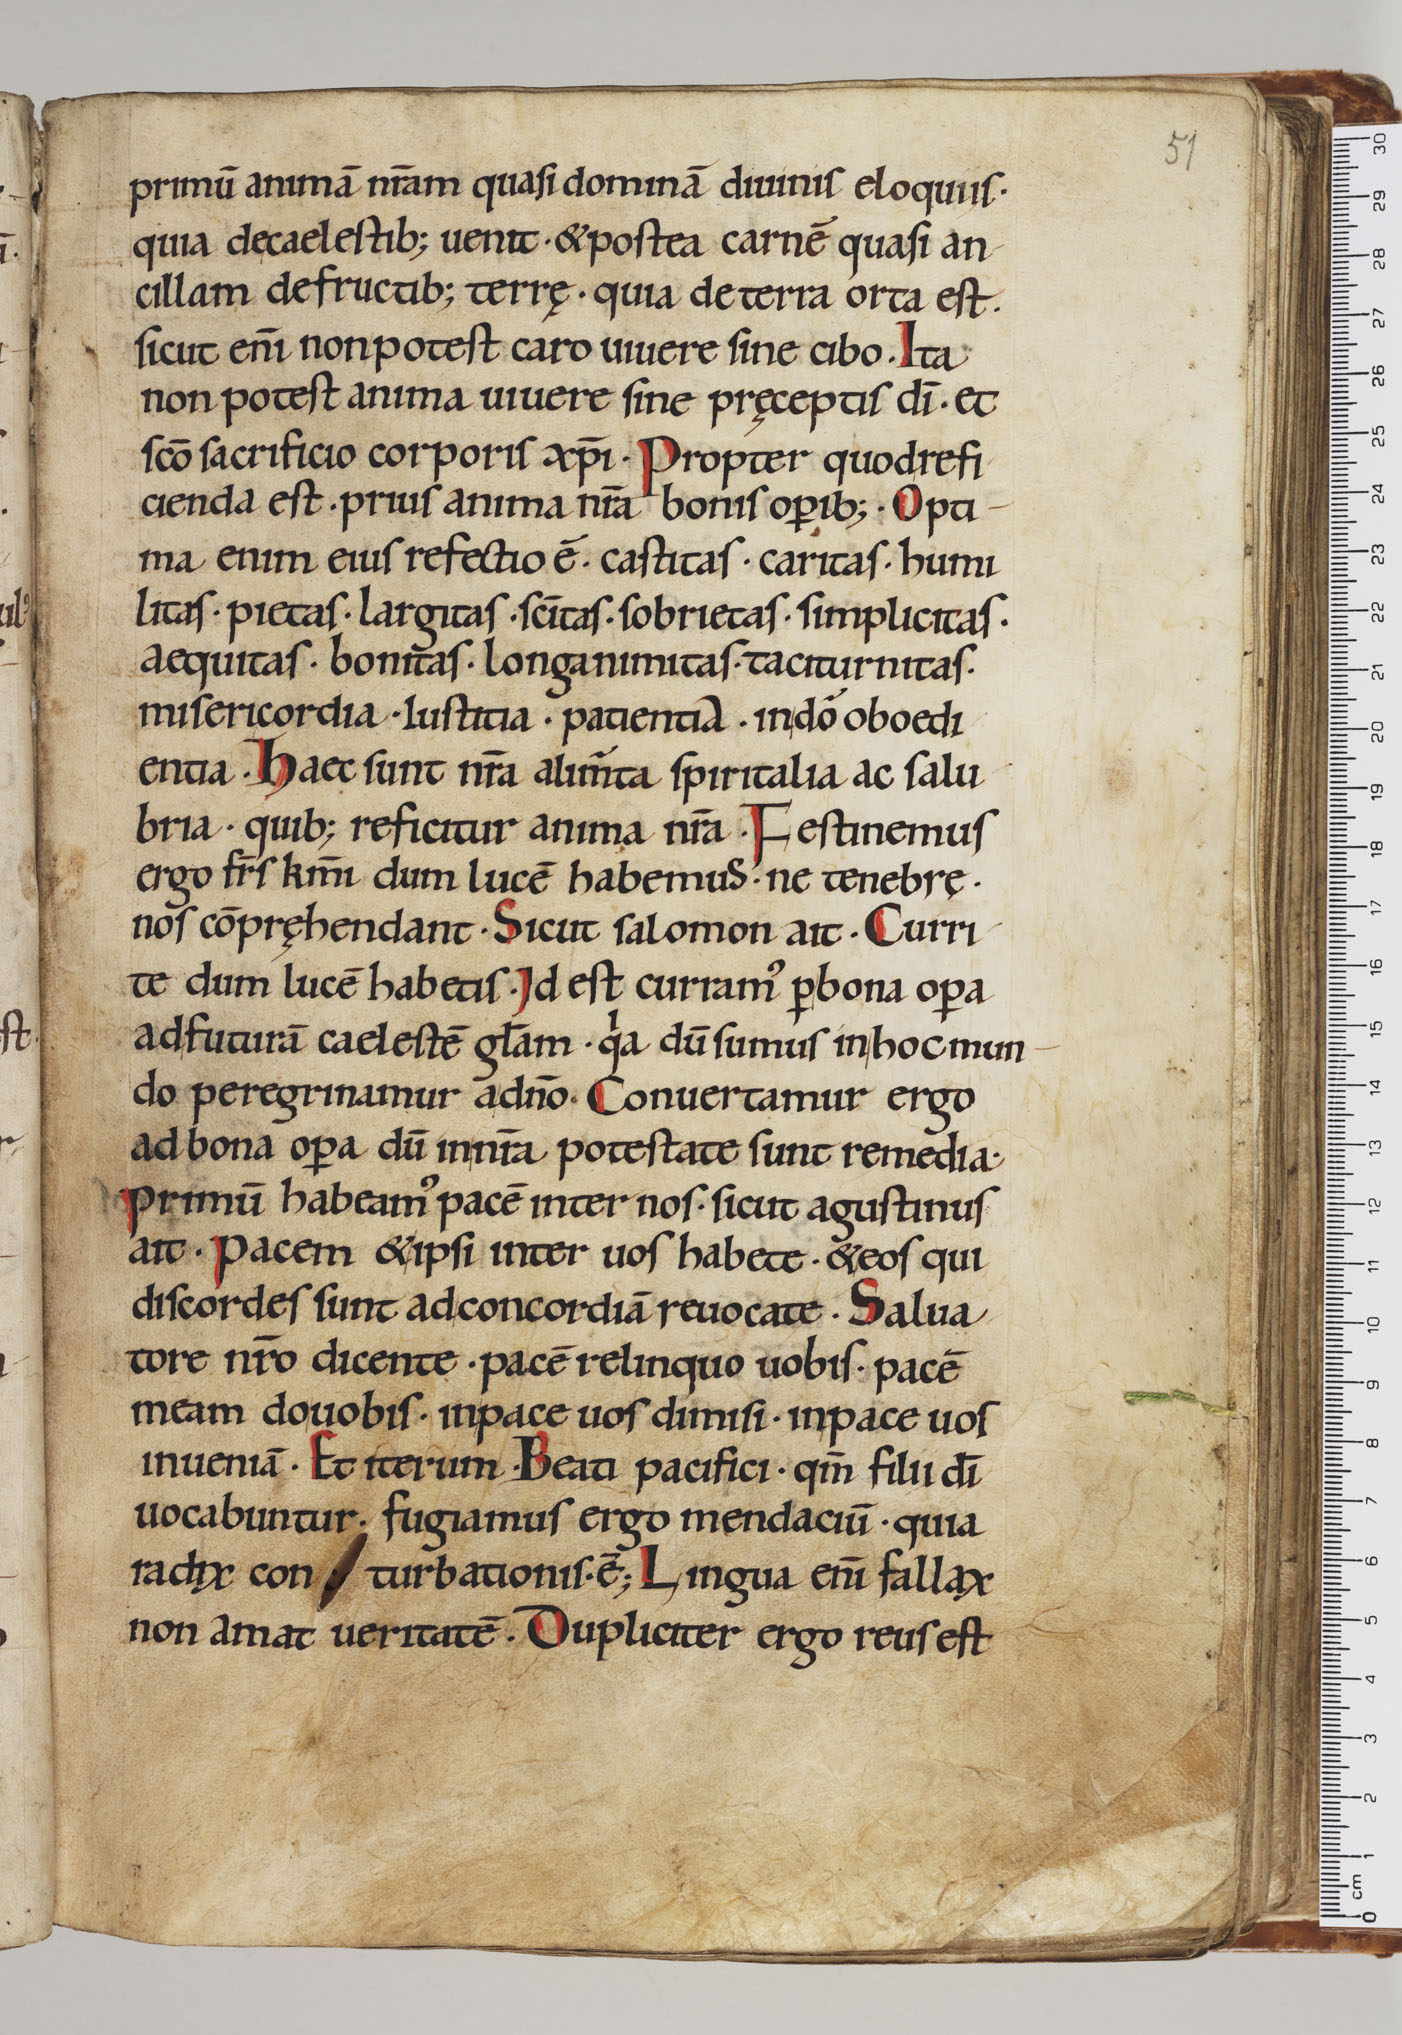 51
primū animā nr̄am quasi dominā diuinis eloquiis·
quia de caelestib; uenit · & postea carnē quasi an
cillam de fructib; terrę · quia de terra orta est.
sicut eni̅ non potest caro uiuere sine cibo. Ita
non potest anima uiuere sine pręceptis dī · et
sc̄o sacrificio corporis xp̄i · Propter quod refi
cienda est · prius anima nr̄a bonis op̱ib; · Opti
ma enim eius refectio ē · castitas · caritas · humi
litas · pietas · largitas · sc̄itas · sobrietas · simplicitas ·
aequitas · bonitas · longanimitas · taciturnitas ·
misericordia · Iustitia · patientia · in dō oboedi
entia · Haec sunt nr̄a alim̄ta spiritalia ac salu
bria · quib; reficitur anima nr̄a · Festinemus
ergo fr̄s km̄i dum lucē habemus · ne tenebrę ·
nos cōpręhendant · Sicut salomon ait · Curri
te dum lucē habetis · Id est curram᾽ ꝑ bona oꝑa
ad futurā caelestē gl̄am · qia dū sumus in hoc mun
do peregrinamur a dn̄o · Conuertamur ergo
ad bona oꝑa dū in nr̄a potestate sunt remedia ·
Primū habeam᾽ pacē inter nos · sicut agustinus
ait · Pacem & ipsi inter uos habete · & eos qui
discordes sunt ad concordiā reuocate · Salua
tore nr̄o dicente · pacē relinquo uobis · pacē
meam do uobis · in pace uos dimisi · in pace uos
inueniā · Et iterum · Beati pacifici · qm̄ filii dī
uocabuntur · fugiamus ergo mendaciū · quia
radix con turbationis · ē; Lingua eni̅ fallax
non amat ueritatē · Dupliciter ergo reus est